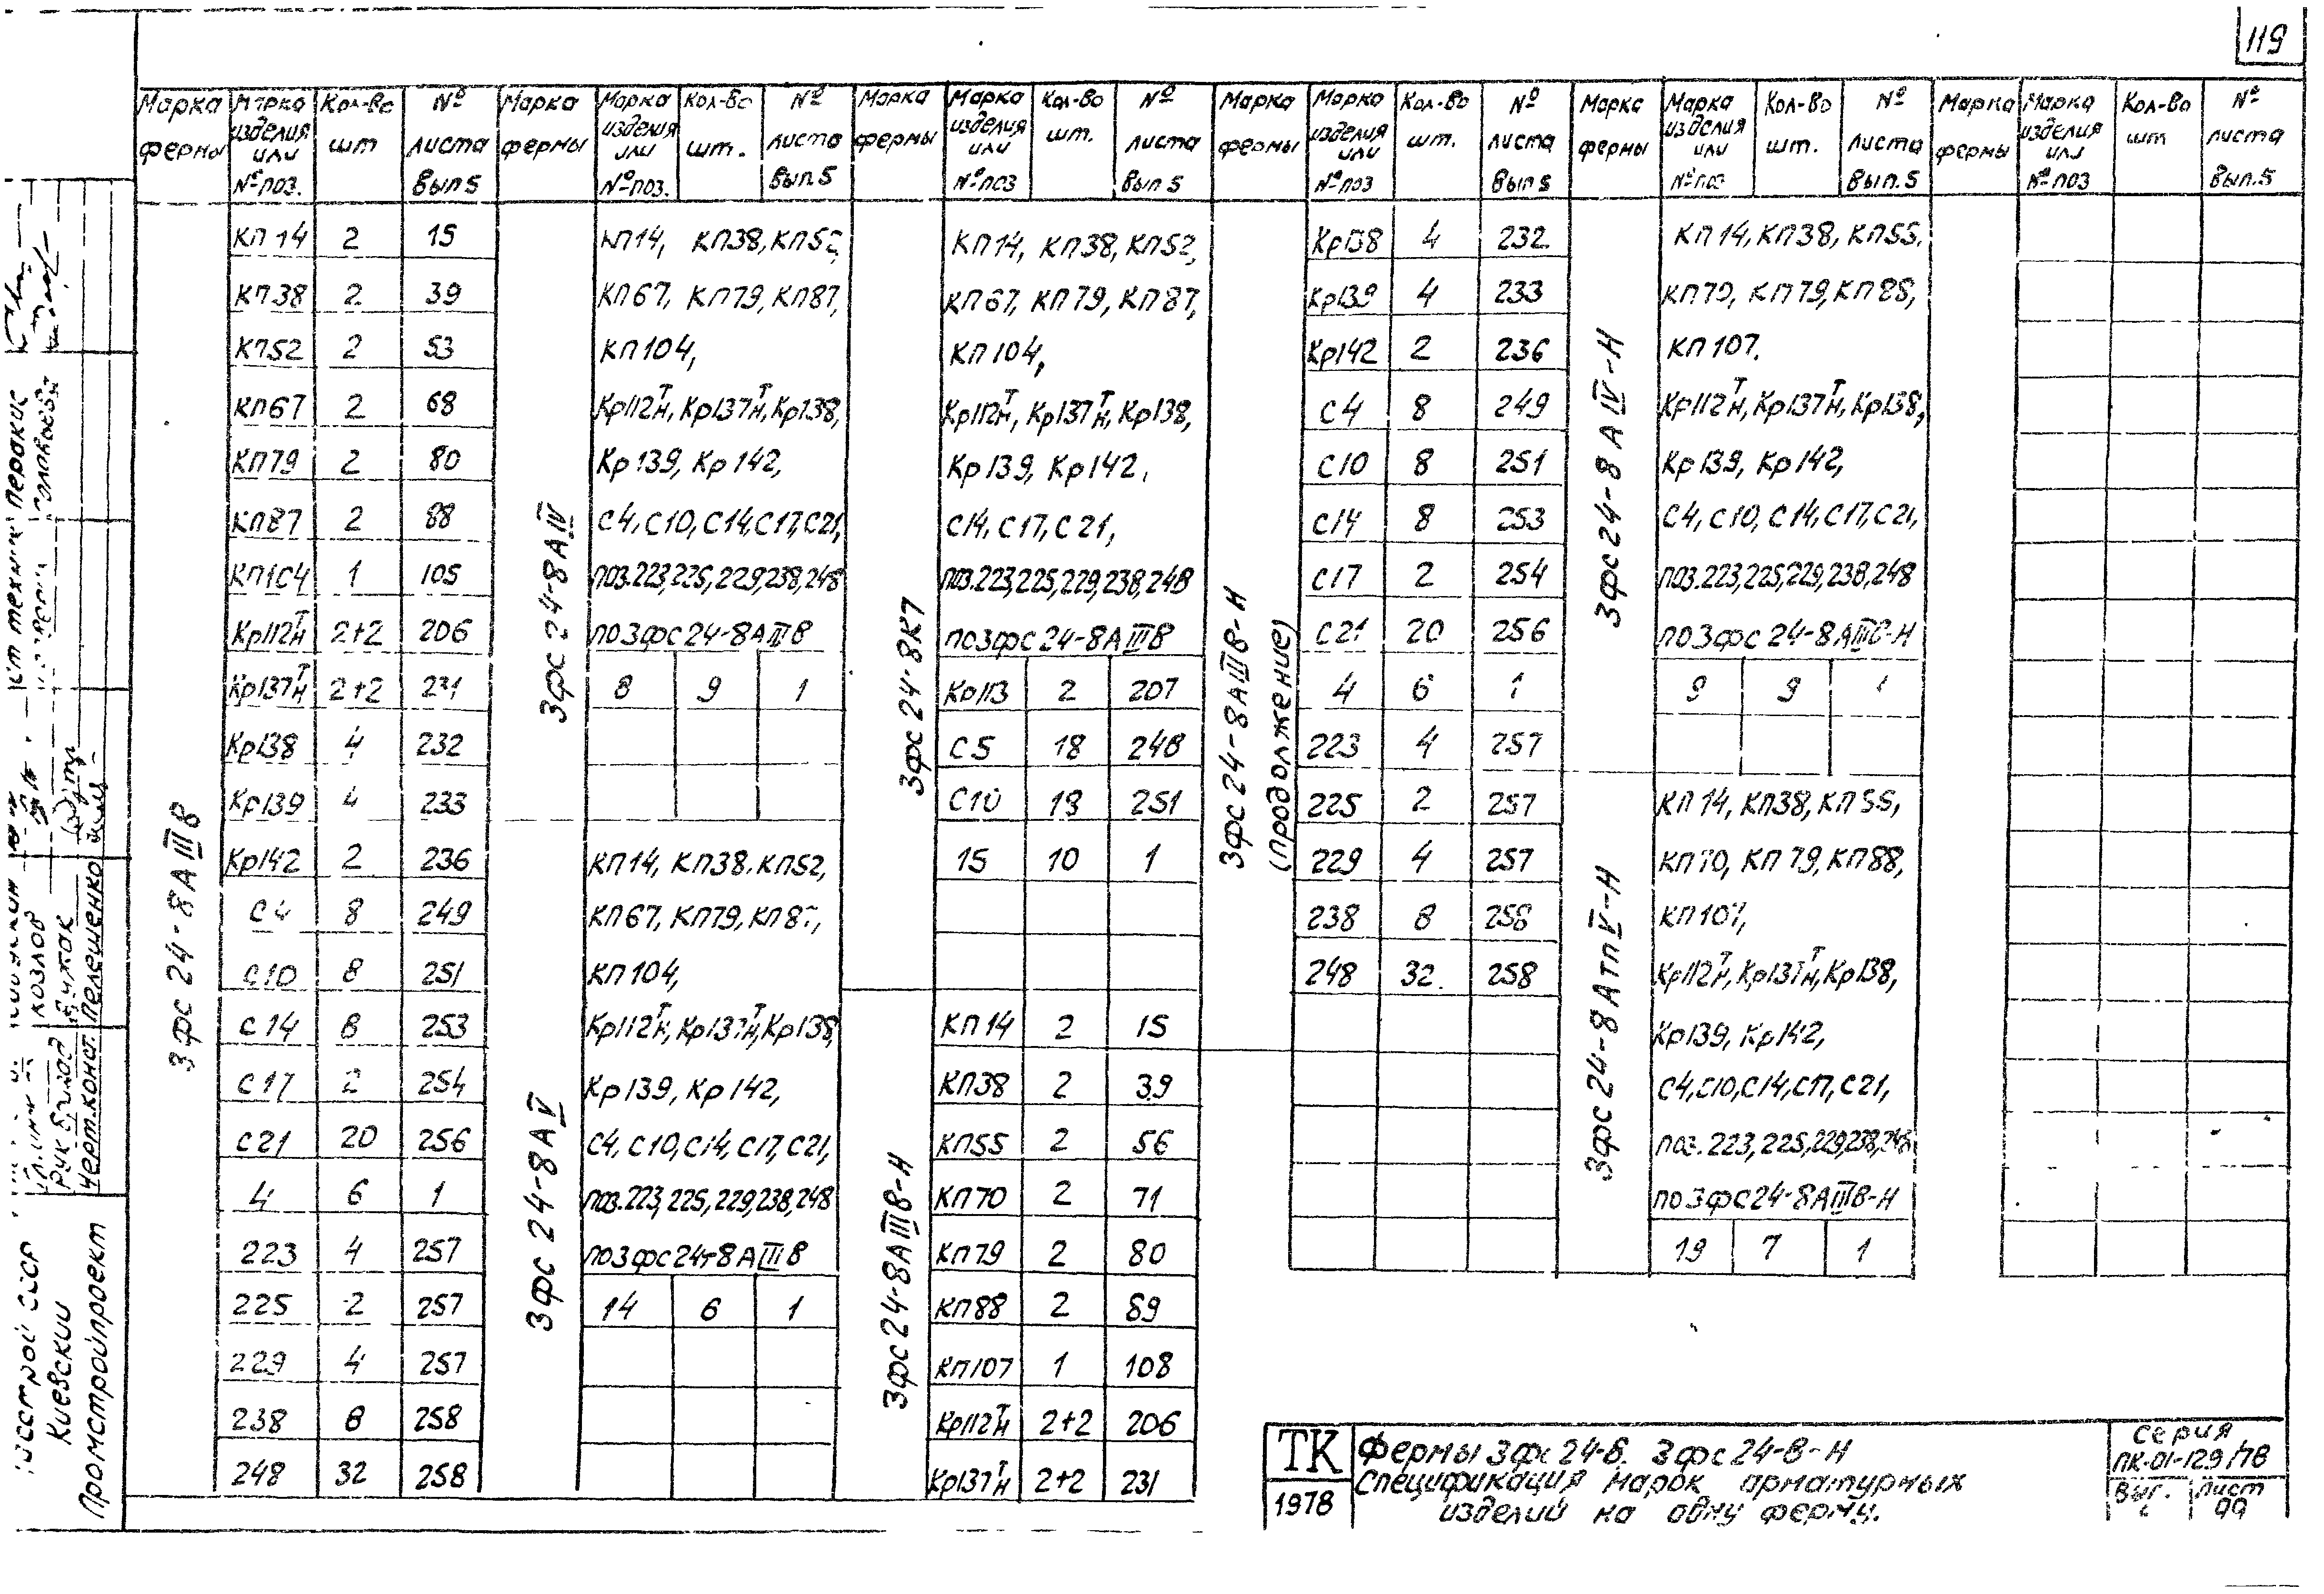 119
Марка фермы | Марка изделия или № поз. | Кол-во шт | № листа Вып 5
3фс 24-8АIIIв
КП 14 | 2 | 15
КП38 | 2 | 39
КП52 | 2 | 53
КП67 | 2 | 68
КП79 | 2 | 80
КП87 | 2 | 88
КП104 | 1 | 105
Кр112Т/Н | 2+2 | 206
Кр137Т/Н | 2+2 | 231
Кр138 | 4 | 232
Кр139 | 4 | 233
Кр142 | 2 | 236
С4 | 8 | 249
С10 | 8 | 251
С14 | 8 | 253
С17 | 2 | 254
С21 | 20 | 256
4 | 6 | 1
223 | 4 | 257
225 | 2 | 257
229 | 4 | 257
238 | 8 | 258
248 | 32 | 258
Марка фермы | Марка изделия или № поз. | Кол-во шт. | № листа Вып.5
3фс 24-8АIV
КП14, КП38, КП52,
КП67, КП79, КП87,
КП104,
Кр112Т/Н, Кр137Т/Н, Кр138,
Кр139, Кр142,
С4, С10, С14, С17, С21,
поз. 223, 225, 229, 238, 248
по 3фс 24-8АIIIв
8 | 9 | 1
3фс 24-8АV
КП14, КП38. КП52,
КП67, КП79, КП87,
КП104,
Кр112Т/Н, Кр137Т/Н, Кр138,
Кр139, Кр142,
С4, С10, С14, С17, С21,
поз. 223, 225, 229, 238, 248
по 3фс 24-8АIIIв
14 | 6 | 1
Марка фермы | Марка изделия или № поз | Кол-во шт. | № листа Вып 5
3фс 24-8К7
КП14, КП38, КП52,
КП67, КП79, КП87,
КП104,
Кр112Т/Н, Кр137Т/Н, Кр138,
Кр139, Кр142,
С14, С17, С21,
поз. 223, 225, 229, 238, 248
по 3фс 24-8АIIIв
Кр113 | 2 | 207
С5 | 18 | 248
С10 | 18 | 251
15 | 10 | 1
3фс 24-8АIIIв-Н
КП14 | 2 | 15
КП38 | 2 | 39
КП55 | 2 | 56
КП70 | 2 | 71
КП79 | 2 | 80
КП88 | 2 | 89
КП107 | 1 | 108
Кр112Т/Н | 2+2 | 206
Кр137Т/Н | 2+2 | 231
Марка фермы | Марка изделия или № поз | Кол-во шт. | № листа Вып 5
3фс 24-8АIIIв-Н
(продолжение)
Кр138 | 4 | 232
Кр139 | 4 | 233
Кр142 | 2 | 236
С4 | 8 | 249
С10 | 8 | 251
С14 | 8 | 253
С17 | 2 | 254
С21 | 20 | 256
4 | 6 | 1
223 | 4 | 257
225 | 2 | 257
229 | 4 | 257
238 | 8 | 258
248 | 32 | 258
Марка фермы | Марка изделия или № поз | Кол-во шт. | № листа Вып.5
3фс 24-8АIV-Н
КП14, КП38, КП55,
КП70, КП79, КП88,
КП107.
Кр112Т/Н, Кр137Т/Н, Кр138,
Кр139, Кр142,
С4, С10, С14, С17, С21,
поз. 223, 225, 229, 238, 248
по 3фс 24-8АIIIв-Н
9 | 9 | 1
3фс 24-8АтпV-Н
КП14, КП38, КП55,
КП70, КП79, КП88,
КП107,
Кр112Т/Н, Кр137Т/Н, Кр138,
Кр139, Кр142,
С4, С10, С14, С17, С21,
поз. 223, 225, 229, 238, 248
по 3фс 24-8АIIIв-Н
19 | 7 | 1
Марка фермы | Марка изделия или № поз | Кол-во шт | № листа Вып.5
Киевский
Промстройпроект
Черт.конст. Пелешенко
Козлов
ТК
1978
Фермы 3фс 24-8. 3фс 24-8-Н
Спецификация марок арматурных
изделий на одну ферму.
Серия
ПК-01-129/78
Лист
99